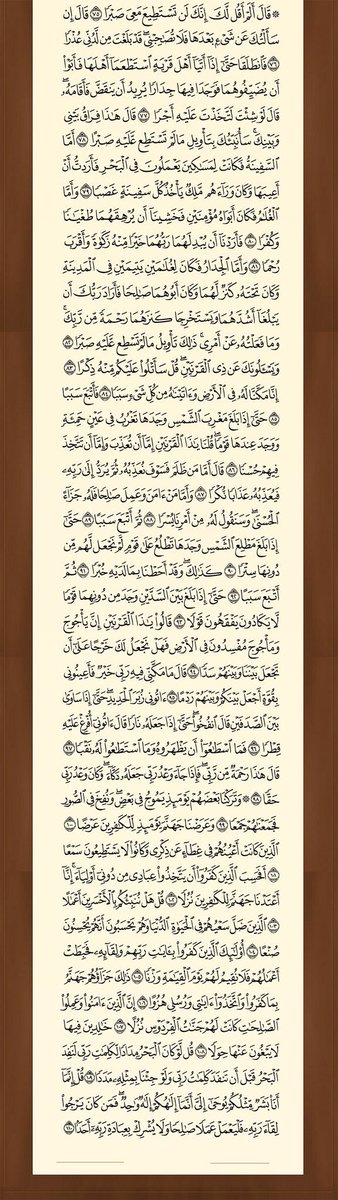 ۞ قَالَ أَلَمْ أَقُل لَّكَ إِنَّكَ لَن تَسْتَطِيعَ مَعِىَ صَبْرًا ٧٥ قَالَ إِن
سَأَلْتُكَ عَن شَىْءٍۭ بَعْدَهَا فَلَا تُصَـٰحِبْنِى ۖ قَدْ بَلَغْتَ مِن لَّدُنِّى عُذْرًا
٧٦ فَٱنطَلَقَا حَتَّىٰٓ إِذَآ أَتَيَآ أَهْلَ قَرْيَةٍ ٱسْتَطْعَمَآ أَهْلَهَا فَأَبَوْا۟
أَن يُضَيِّفُوهُمَا فَوَجَدَا فِيهَا جِدَارًا يُرِيدُ أَن يَنقَضَّ فَأَقَامَهُۥ ۖ
قَالَ لَوْ شِئْتَ لَتَّخَذْتَ عَلَيْهِ أَجْرًا ٧٧ قَالَ هَـٰذَا فِرَاقُ بَيْنِى
وَبَيْنِكَ ۚ سَأُنَبِّئُكَ بِتَأْوِيلِ مَا لَمْ تَسْتَطِع عَّلَيْهِ صَبْرًا ٧٨ أَمَّا
ٱلسَّفِينَةُ فَكَانَتْ لِمَسَـٰكِينَ يَعْمَلُونَ فِى ٱلْبَحْرِ فَأَرَدتُّ أَنْ
أَعِيبَهَا وَكَانَ وَرَآءَهُم مَّلِكٌ يَأْخُذُ كُلَّ سَفِينَةٍ غَصْبًا ٧٩ وَأَمَّا
ٱلْغُلَـٰمُ فَكَانَ أَبَوَاهُ مُؤْمِنَيْنِ فَخَشِينَآ أَن يُرْهِقَهُمَا طُغْيَـٰنًا
وَكُفْرًا ٨٠ فَأَرَدْنَآ أَن يُبْدِلَهُمَا رَبُّهُمَا خَيْرًا مِّنْهُ زَكَوٰةً وَأَقْرَبَ
رُحْمًا ٨١ وَأَمَّا ٱلْجِدَارُ فَكَانَ لِغُلَـٰمَيْنِ يَتِيمَيْنِ فِى ٱلْمَدِينَةِ
وَكَانَ تَحْتَهُۥ كَنزٌ لَّهُمَا وَكَانَ أَبُوهُمَا صَـٰلِحًا فَأَرَادَ رَبُّكَ أَن
يَبْلُغَآ أَشُدَّهُمَا وَيَسْتَخْرِجَا كَنزَهُمَا رَحْمَةً مِّن رَّبِّكَ ۚ
وَمَا فَعَلْتُهُۥ عَنْ أَمْرِى ۚ ذَٰلِكَ تَأْوِيلُ مَا لَمْ تَسْطِع عَّلَيْهِ صَبْرًا ٨٢
وَيَسْـَٔلُونَكَ عَن ذِى ٱلْقَرْنَيْنِ ۖ قُلْ سَأَتْلُوا۟ عَلَيْكُم مِّنْهُ ذِكْرًا ٨٣
إِنَّا مَكَّنَّا لَهُۥ فِى ٱلْأَرْضِ وَءَاتَيْنَـٰهُ مِن كُلِّ شَىْءٍ سَبَبًا ٨٤ فَأَتْبَعَ سَبَبًا
٨٥ حَتَّىٰٓ إِذَا بَلَغَ مَغْرِبَ ٱلشَّمْسِ وَجَدَهَا تَغْرُبُ فِى عَيْنٍ حَمِئَةٍ
وَوَجَدَ عِندَهَا قَوْمًا ۗ قُلْنَا يَـٰذَا ٱلْقَرْنَيْنِ إِمَّآ أَن تُعَذِّبَ وَإِمَّآ أَن تَتَّخِذَ
فِيهِمْ حُسْنًا ٨٦ قَالَ أَمَّا مَن ظَلَمَ فَسَوْفَ نُعَذِّبُهُۥ ثُمَّ يُرَدُّ إِلَىٰ رَبِّهِۦ
فَيُعَذِّبُهُۥ عَذَابًا نُّكْرًا ٨٧ وَأَمَّا مَنْ ءَامَنَ وَعَمِلَ صَـٰلِحًا فَلَهُۥ جَزَآءً
ٱلْحُسْنَىٰ ۖ وَسَنَقُولُ لَهُۥ مِنْ أَمْرِنَا يُسْرًا ٨٨ ثُمَّ أَتْبَعَ سَبَبًا ٨٩ حَتَّىٰٓ
إِذَا بَلَغَ مَطْلِعَ ٱلشَّمْسِ وَجَدَهَا تَطْلُعُ عَلَىٰ قَوْمٍ لَّمْ نَجْعَل لَّهُم مِّن
دُونِهَا سِتْرًا ٩٠ كَذَٰلِكَ وَقَدْ أَحَطْنَا بِمَا لَدَيْهِ خُبْرًا ٩١ ثُمَّ
أَتْبَعَ سَبَبًا ٩٢ حَتَّىٰٓ إِذَا بَلَغَ بَيْنَ ٱلسَّدَّيْنِ وَجَدَ مِن دُونِهِمَا قَوْمًا
لَّا يَكَادُونَ يَفْقَهُونَ قَوْلًا ٩٣ قَالُوا۟ يَـٰذَا ٱلْقَرْنَيْنِ إِنَّ يَأْجُوجَ
وَمَأْجُوجَ مُفْسِدُونَ فِى ٱلْأَرْضِ فَهَلْ نَجْعَلُ لَكَ خَرْجًا عَلَىٰٓ أَن
تَجْعَلَ بَيْنَنَا وَبَيْنَهُمْ سَدًّا ٩٤ قَالَ مَا مَكَّنِّى فِيهِ رَبِّى خَيْرٌ فَأَعِينُونِى
بِقُوَّةٍ أَجْعَلْ بَيْنَكُمْ وَبَيْنَهُمْ رَدْمًا ٩٥ ءَاتُونِى زُبَرَ ٱلْحَدِيدِ ۖ حَتَّىٰٓ إِذَا سَاوَىٰ
بَيْنَ ٱلصَّدَفَيْنِ قَالَ ٱنفُخُوا۟ ۖ حَتَّىٰٓ إِذَا جَعَلَهُۥ نَارًا قَالَ ءَاتُونِىٓ أُفْرِغْ عَلَيْهِ
قِطْرًا ٩٦ فَمَا ٱسْطَـٰعُوٓا۟ أَن يَظْهَرُوهُ وَمَا ٱسْتَطَـٰعُوا۟ لَهُۥ نَقْبًا ٩٧
قَالَ هَـٰذَا رَحْمَةٌ مِّن رَّبِّى ۖ فَإِذَا جَآءَ وَعْدُ رَبِّى جَعَلَهُۥ دَكَّآءَ ۖ وَكَانَ وَعْدُ رَبِّى
حَقًّا ٩٨ ۞ وَتَرَكْنَا بَعْضَهُمْ يَوْمَئِذٍ يَمُوجُ فِى بَعْضٍ ۖ وَنُفِخَ فِى ٱلصُّورِ
فَجَمَعْنَـٰهُمْ جَمْعًا ٩٩ وَعَرَضْنَا جَهَنَّمَ يَوْمَئِذٍ لِّلْكَـٰفِرِينَ عَرْضًا ١٠٠
ٱلَّذِينَ كَانَتْ أَعْيُنُهُمْ فِى غِطَآءٍ عَن ذِكْرِى وَكَانُوا۟ لَا يَسْتَطِيعُونَ سَمْعًا
١٠١ أَفَحَسِبَ ٱلَّذِينَ كَفَرُوٓا۟ أَن يَتَّخِذُوا۟ عِبَادِى مِن دُونِىٓ أَوْلِيَآءَ ۚ إِنَّآ
أَعْتَدْنَا جَهَنَّمَ لِلْكَـٰفِرِينَ نُزُلًا ١٠٢ قُلْ هَلْ نُنَبِّئُكُم بِٱلْأَخْسَرِينَ أَعْمَـٰلًا
١٠٣ ٱلَّذِينَ ضَلَّ سَعْيُهُمْ فِى ٱلْحَيَوٰةِ ٱلدُّنْيَا وَهُمْ يَحْسَبُونَ أَنَّهُمْ يُحْسِنُونَ
صُنْعًا ١٠٤ أُو۟لَـٰٓئِكَ ٱلَّذِينَ كَفَرُوا۟ بِـَٔايَـٰتِ رَبِّهِمْ وَلِقَآئِهِۦ فَحَبِطَتْ
أَعْمَـٰلُهُمْ فَلَا نُقِيمُ لَهُمْ يَوْمَ ٱلْقِيَـٰمَةِ وَزْنًا ١٠٥ ذَٰلِكَ جَزَآؤُهُمْ جَهَنَّمُ
بِمَا كَفَرُوا۟ وَٱتَّخَذُوٓا۟ ءَايَـٰتِى وَرُسُلِى هُزُوًا ١٠٦ إِنَّ ٱلَّذِينَ ءَامَنُوا۟ وَعَمِلُوا۟
ٱلصَّـٰلِحَـٰتِ كَانَتْ لَهُمْ جَنَّـٰتُ ٱلْفِرْدَوْسِ نُزُلًا ١٠٧ خَـٰلِدِينَ فِيهَا
لَا يَبْغُونَ عَنْهَا حِوَلًا ١٠٨ قُل لَّوْ كَانَ ٱلْبَحْرُ مِدَادًا لِّكَلِمَـٰتِ رَبِّى لَنَفِدَ
ٱلْبَحْرُ قَبْلَ أَن تَنفَدَ كَلِمَـٰتُ رَبِّى وَلَوْ جِئْنَا بِمِثْلِهِۦ مَدَدًا ١٠٩ قُلْ إِنَّمَآ
أَنَا۠ بَشَرٌ مِّثْلُكُمْ يُوحَىٰٓ إِلَىَّ أَنَّمَآ إِلَـٰهُكُمْ إِلَـٰهٌ وَٰحِدٌ ۖ فَمَن كَانَ يَرْجُوا۟
لِقَآءَ رَبِّهِۦ فَلْيَعْمَلْ عَمَلًا صَـٰلِحًا وَلَا يُشْرِكْ بِعِبَادَةِ رَبِّهِۦٓ أَحَدًۢا ١١٠